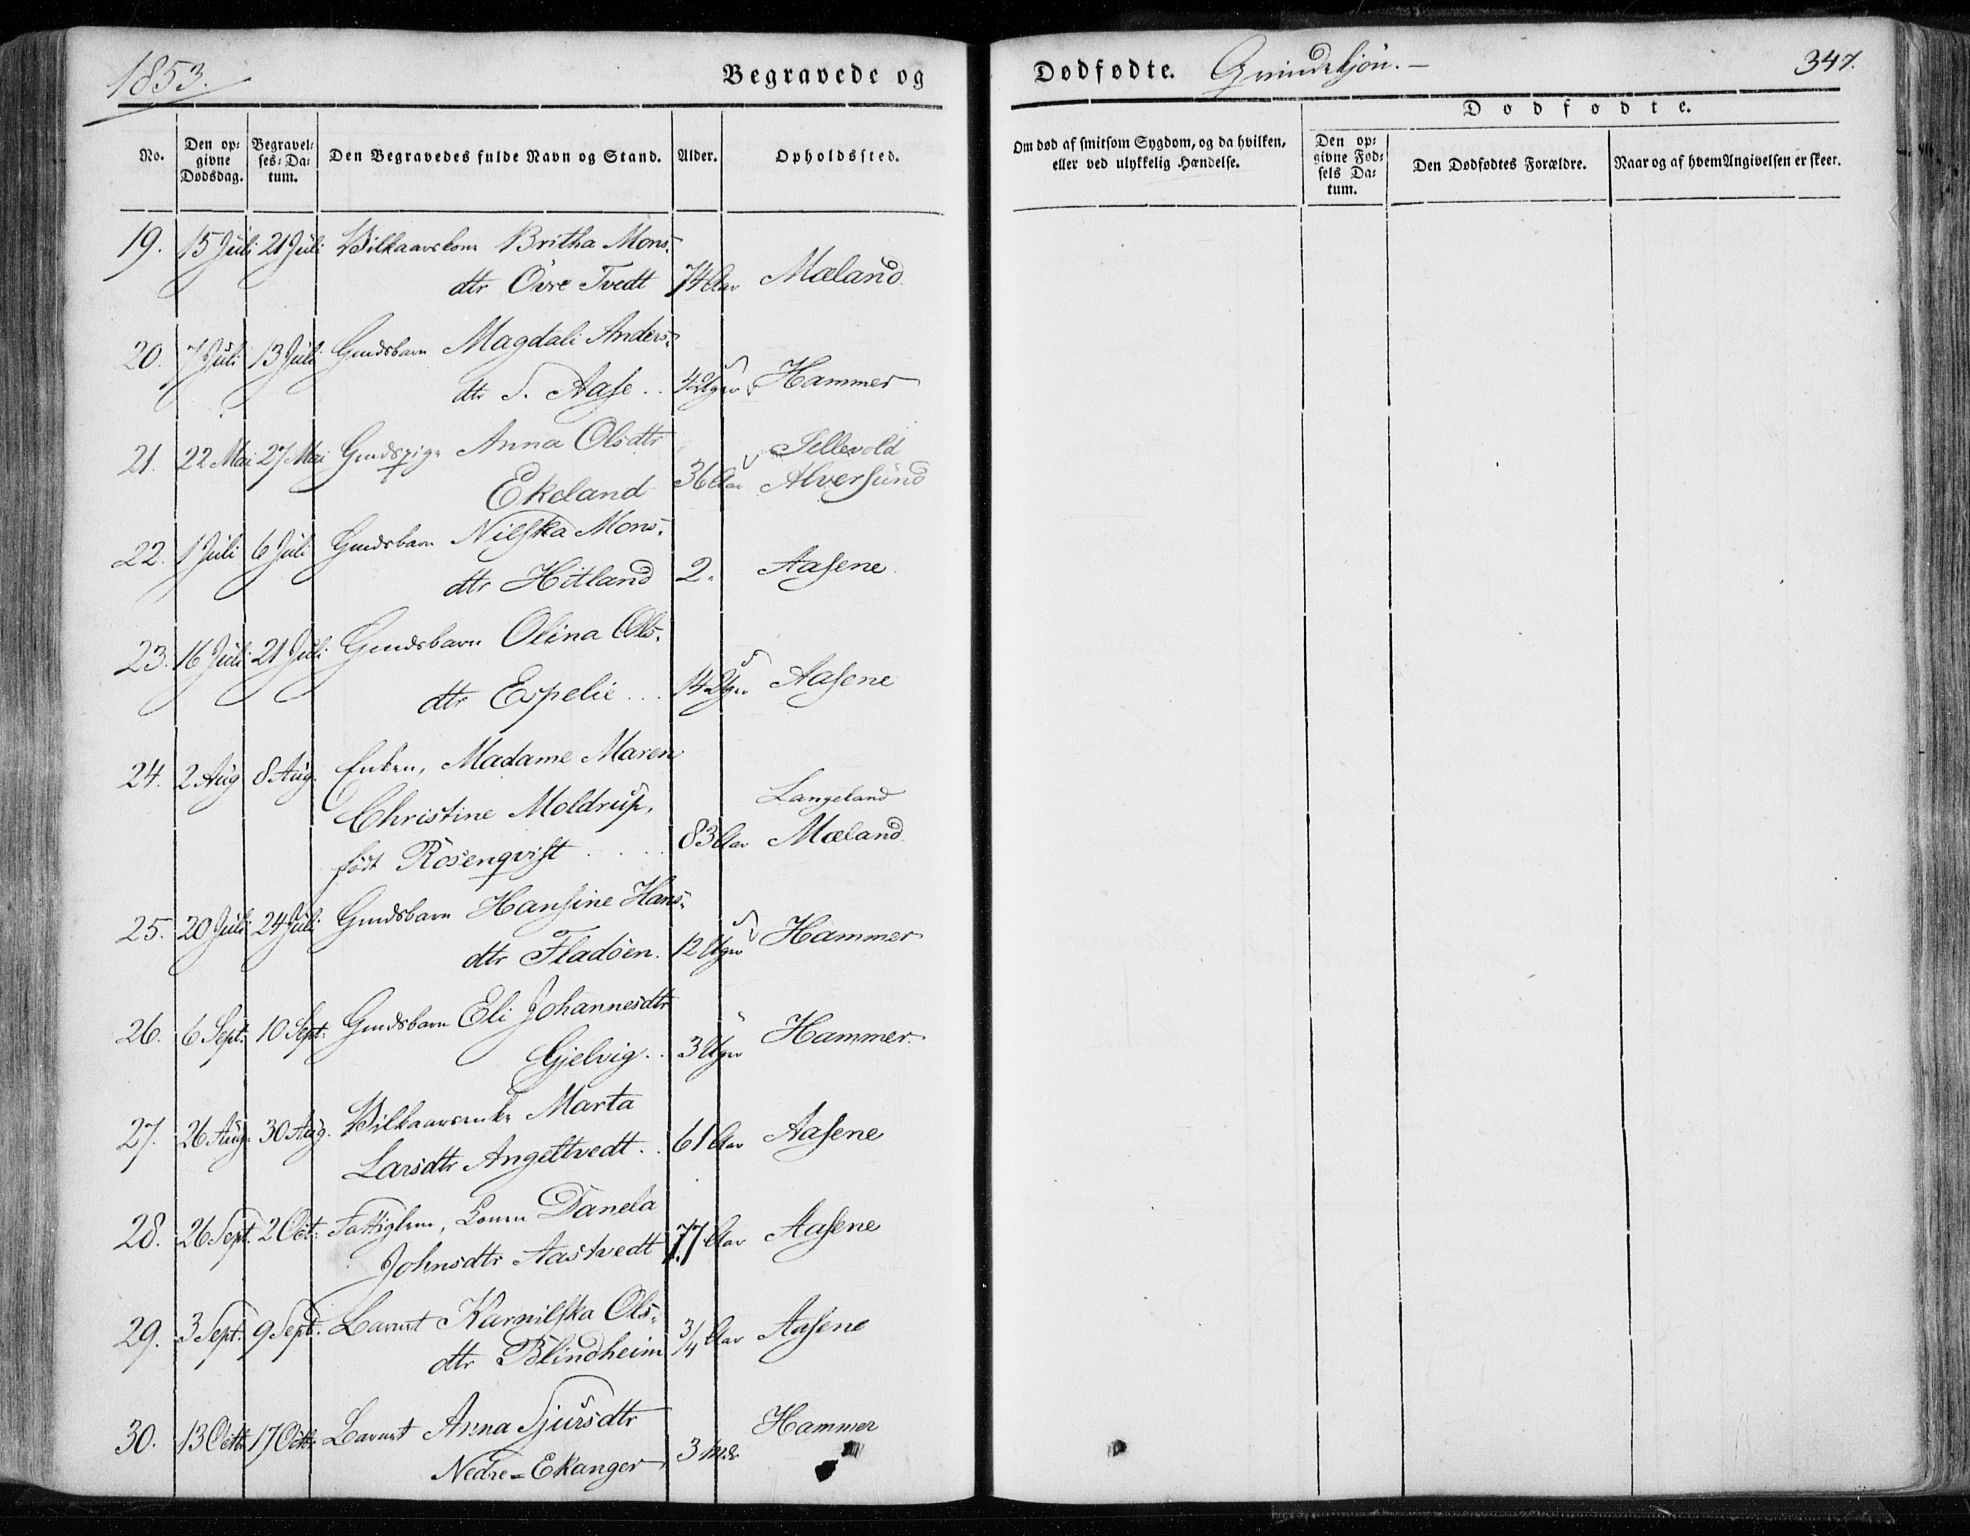 1853.
Begravede og
Dødfødte. Qvindekjøn. —
347.
No.
Den op-
givne
Dødsdag.
Begravel-
ses-Da-
tum.
Den Begravedes fulde Navn og Stand.
Alder.
Opholdssted.
Om død af smitsom Sygdom, og da hvilken,
eller ved ulykkelig Hændelse.
Dødfødte.
Den op-
givne Fød-
sels Da-
tum.
Den Dødfødtes Forældre.
Naar og af hvem Angivelsen er skeet.
19. 15 Juli 21 Juli Vilkaarskone Britha Mons-
dtr Øvre Tvedt 74 Aar Mæland.
20. 7 Juli 13 Juli Gmdsbarn Magdali Anders-
dtr S. Aase .. 4 Uger Hammer
21. 22 Mai 27 Mai Gmdspige Anna Olsdtr Sellevold
Ekeland 36 Aar Alversund
22. 1 Juli 6 Juli Gmdsbarn Nilska Mons-
dtr Hitland 2. Aasene
23. 16 Juli 21 Juli Gmdsbarn Olina Ols-
dtr Espelie ... 14 Uger Aasene
24. 2 Aug 8 Aug. Enken, Madame Maren
Christine Moldrup, Langeland
født Rosenqvist .... 83 Aar Mæland.
25. 20 Juli 24 Juli Gmdsbarn Hansine Hans-
dtr Fladøen. 12 Uger Hammer
26. 6 Sept. 10 Sept. Gmdsbarn Eli Johannesdtr
Gjelvig .. 3 Uger Hammer.
27. 26 Aug. 30 Aug. Vilkaarsenke Marta
Larsdtr Angeltvedt .. 61 Aar Aasene
28. 26 Sept. 2 Oct. Fattiglem, Konen Danela
Johnsdtr Aastvedt 77 Aar Aasene
29. 3 Sept. 9 Sept. Barnet Karnilska Ols-
dtr Blindheim 3/4 Aar Aasene
30. 13 Octbr 17 Octbr Barnet Anna Sjursdtr
Nedre-Ekanger 3 Mdr Hammer